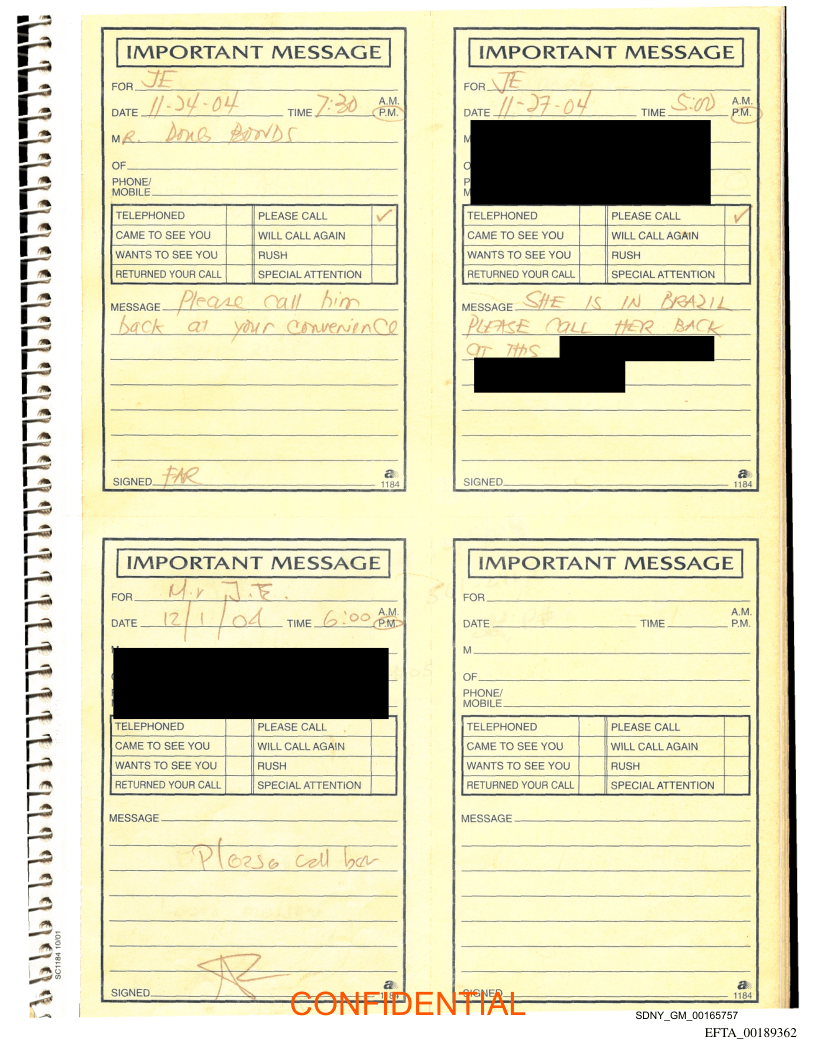 IMPORTANT MESSAGE
FOR JE
DATE 11-24-04 TIME 7:30 A.M. P.M.
MR. DOUG BONDS
OF
PHONE/
MOBILE
TELEPHONED PLEASE CALL ✓
CAME TO SEE YOU WILL CALL AGAIN
WANTS TO SEE YOU RUSH
RETURNED YOUR CALL SPECIAL ATTENTION
MESSAGE Please call him
back at your convenience
SIGNED
a
1184
IMPORTANT MESSAGE
FOR JE
DATE 11-27-04 TIME 5:00 A.M. P.M.
TELEPHONED PLEASE CALL ✓
CAME TO SEE YOU WILL CALL AGAIN
WANTS TO SEE YOU RUSH
RETURNED YOUR CALL SPECIAL ATTENTION
MESSAGE SHE IS IN BRAZIL
PLEASE CALL HER BACK
AT THIS
SIGNED
a
1184
IMPORTANT MESSAGE
FOR Mr J.E.
DATE 12/1/04 TIME 6:00 A.M. P.M.
TELEPHONED PLEASE CALL
CAME TO SEE YOU WILL CALL AGAIN
WANTS TO SEE YOU RUSH
RETURNED YOUR CALL SPECIAL ATTENTION
MESSAGE
Please call her
SIGNED
a
1184
IMPORTANT MESSAGE
FOR
DATE TIME A.M. P.M.
M
OF
PHONE/
MOBILE
TELEPHONED PLEASE CALL
CAME TO SEE YOU WILL CALL AGAIN
WANTS TO SEE YOU RUSH
RETURNED YOUR CALL SPECIAL ATTENTION
MESSAGE
SIGNED
a
1184
SC1184 10/01
CONFIDENTIAL
SDNY_GM_00165757
EFTA_00189362